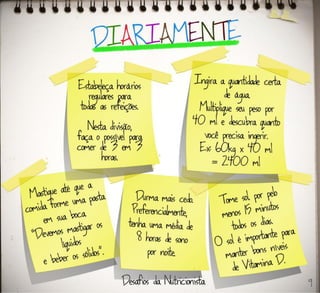 DIARIAMENTE
Estabeleça horários
regulares para
todas as refeições.
Nesta divisão,
faça o possível para
comer de 3 em 3
horas.
Ingira a quantidade certa
de água.
Multiplique seu peso por
40 ml e descubra quanto
você precisa ingerir.
Ex: 60kg x 40 ml
= 2400 ml
Mastigue até que a
comida forme uma pasta
em sua boca.
"Devemos mastigar os
líquidos
e beber os sólidos".
Durma mais cedo.
Preferencialmente,
tenha uma média de
8 horas de sono
por noite.
Tome sol por pelo
menos 15 minutos
todos os dias.
O sol é importante para
manter bons níveis
de Vitamina D.
Desafios da Nutricionista
9